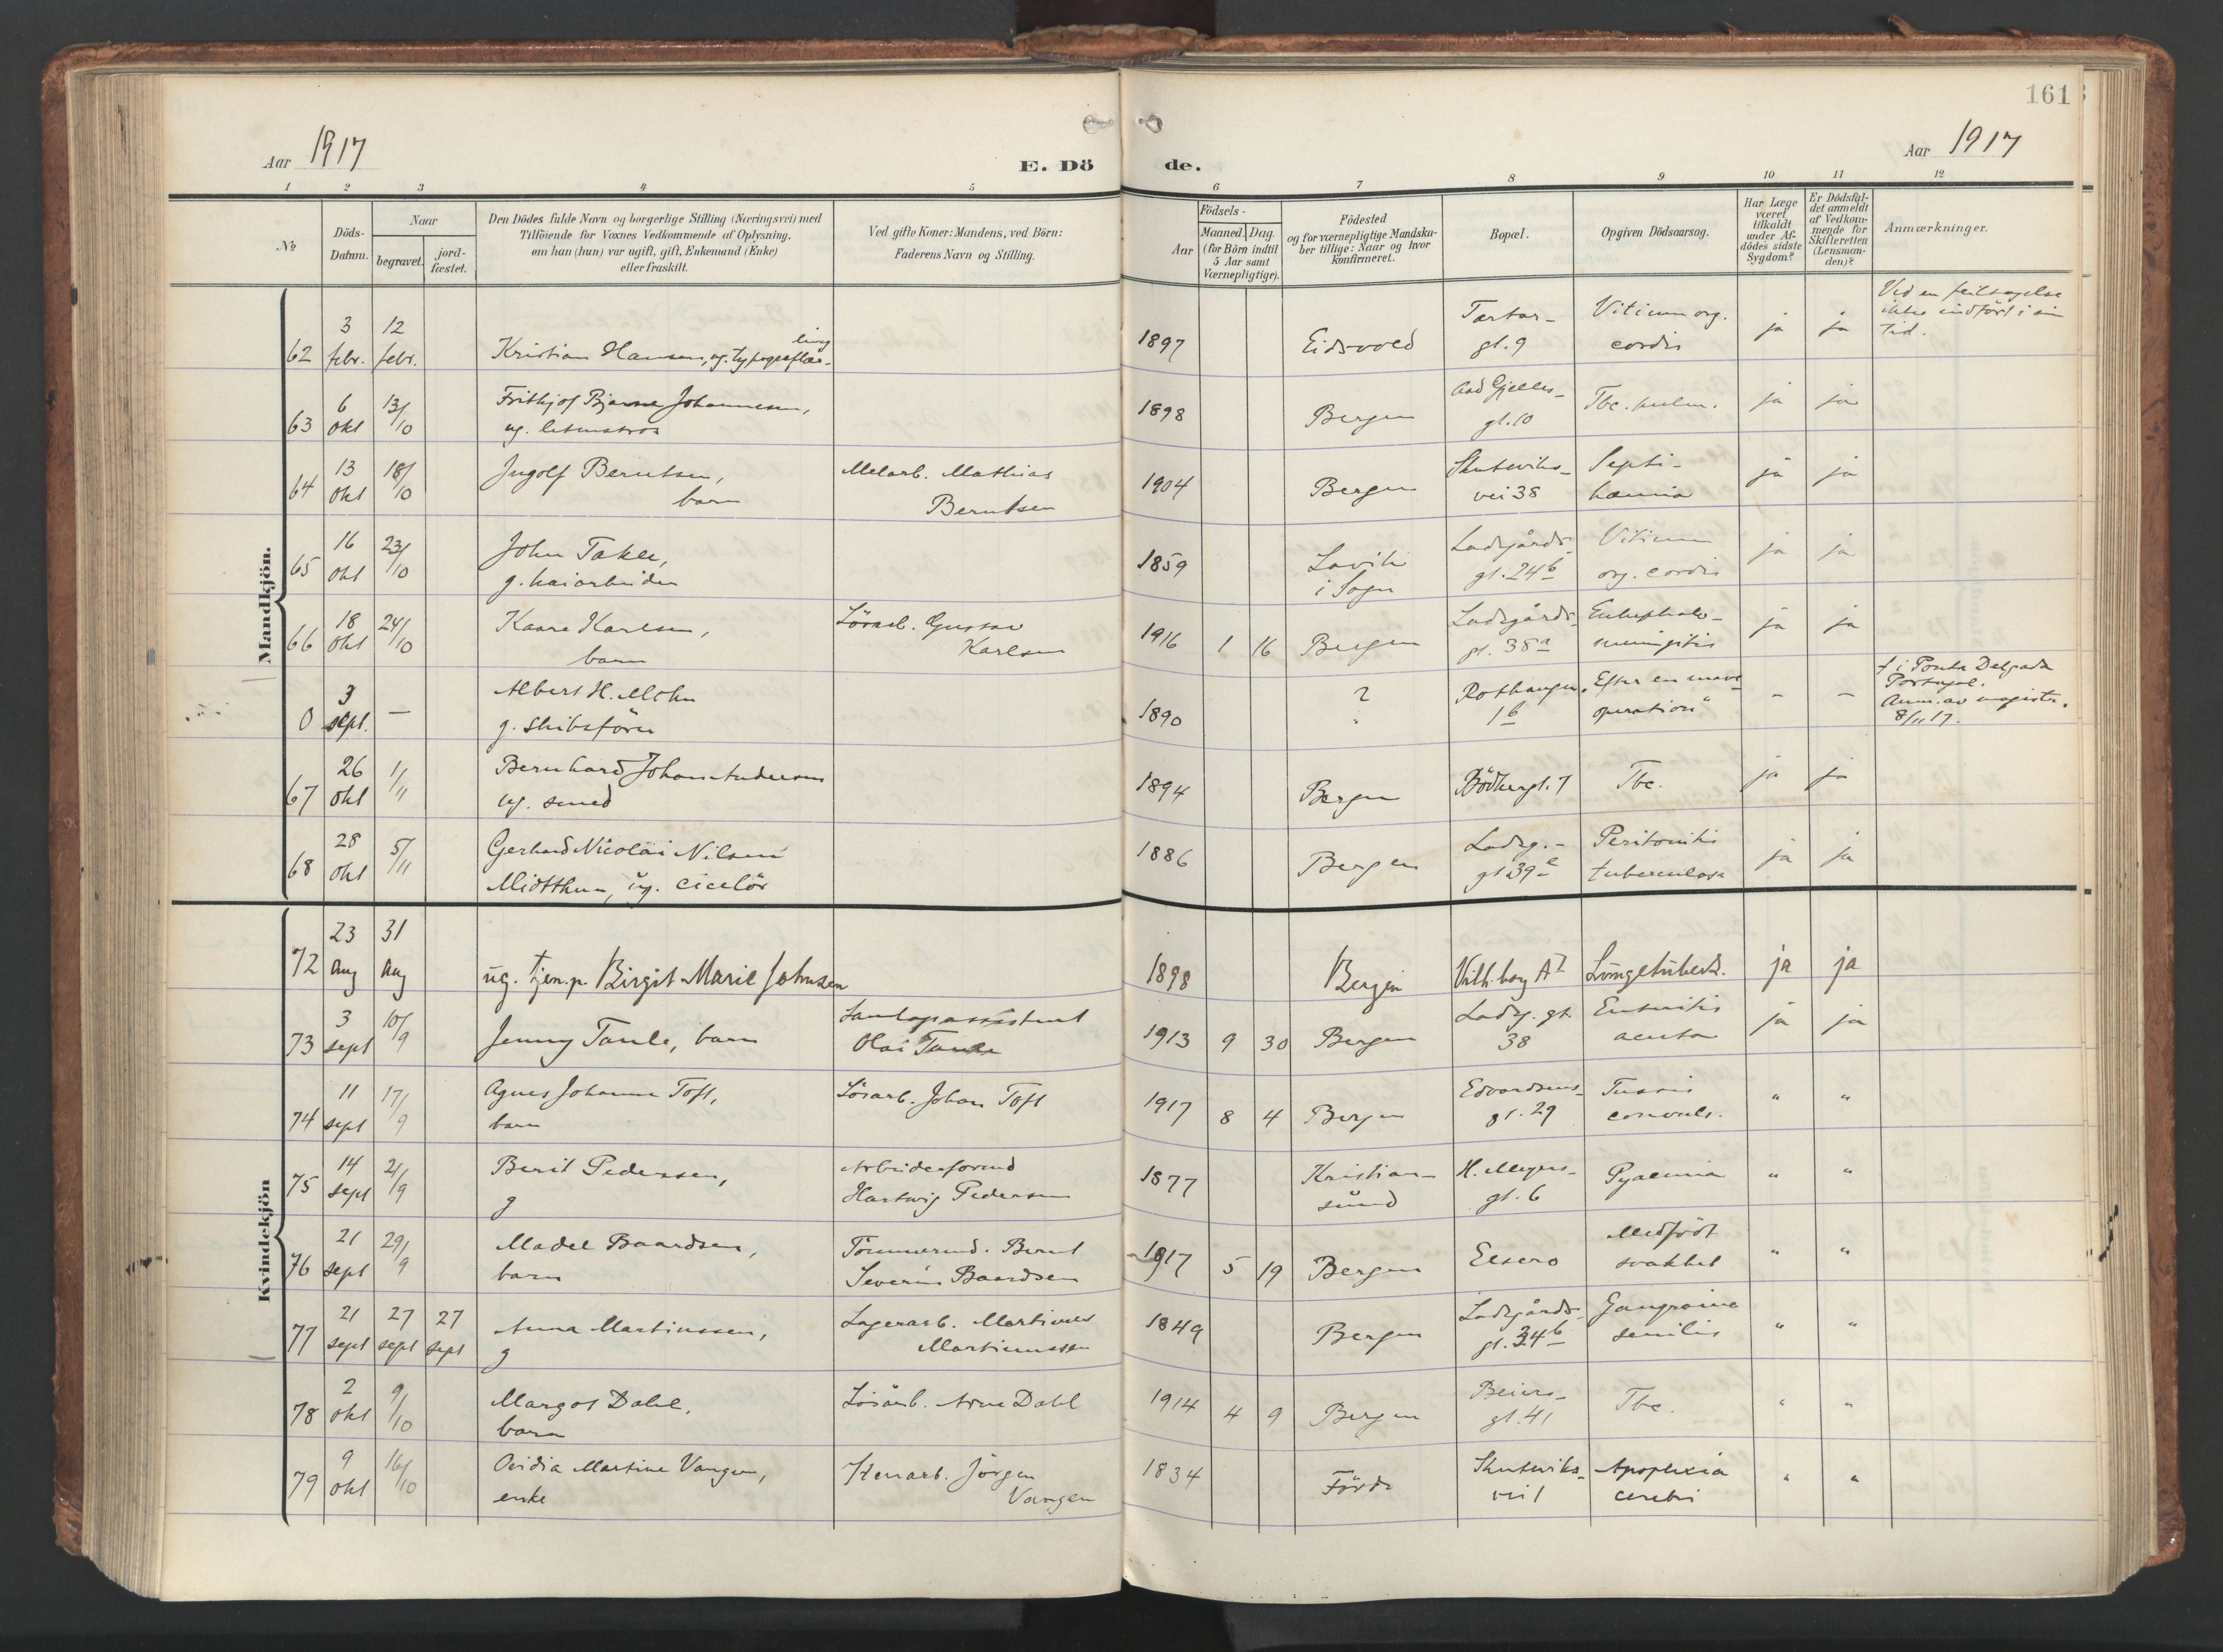 161
Aar 1917
E. Dö
de.
Aar 1917
1 2 3 4 5 6 7 8 9 10 11 12
No
Döds-Datum.
Naar
begravet.
jord-fæstet.
Den Dödes fulde Navn og borgerlige Stilling (Næringsvei) med
Tilföiende for Voxnes Vedkommende af Oplysning,
om han (hun) var ugift, gift, Enkemand (Enke)
eller fraskilt.
Ved gifte Koner: Mandens, ved Börn:
Faderens Navn og Stilling.
Födsels-
Aar
Maaned. Dag.
(for Börn indtil
5 Aar samt
Værnepligtige).
Födested
og for værnepligtige Mandska-
ber tillige: Naar og hvor
Konfirmeret.
Bopæl.
Opgiven Dödsaarsag.
Har Læge
været
tilkaldt
under Af-
dödes sidste
Sygdom?
Er Dödsfal-
det anmeldt
af Vedkom-
mende for
Skifteretten
(Lensman-
den)?
Anmærkninger.
Mandkjön.
62 3 febr. 12 febr. Kristian Hansen, ug. typograflær-
ling
1897 Eidsvold Tartar-
gt. 9
Vitium org.
cordis
ja ja
Ved en feiltagelse
ikke indført i sin
tid.
63 6 okt 13/10 Frithjof Bjarne Johannesen,
ug. letmatros
1898 Bergen Aad Gjelles-
gt. 10
Tbc. pulm. ja ja
64 13 okt 18/10 Ingolf Berntsen,
barn
Melarb. Mathias
Berntsen
1904 Bergen Skuteviks-
vei 38
Septi-
hæmia
ja ja
65 16 okt 23/10 John Takle,
g. kaiarbeider
1859 Lavik
i Sogn
Ladegårds-
gt. 24b
Vitium
org. cordis
ja ja
66 18 okt 24/10 Kaare Karlsen,
barn
Lösarb. Gustav
Karlsen
1916 1 16 Bergen Ladegårds-
gt. 38a
Enkephalo-
meningitis
ja ja
0 3 sept. — Albert H. Mohn
g. skibsförer
1890 ? Rothaugen
1b
"Efter en mave-
operation"
- -
† i Ponta Delgada
Portugal.
Anm. av magistr.
8/11 17.
67 26 okt 1/11 Bernhard Johan Andersen
ug. smed
1894 Bergen Bödkergt. 7 Tbc. ja ja
68 28 okt 5/11 Gerhard Nicolai Nilsen
Midtthun, ug. cicelör
1886 Bergen Ladeg.-
gt 39
Peritonitis
tuberculosa
ja ja
Kvindekjön
72 23 Aug 31 Aug ug. tjen.p. Birgit Marie Johnsen
1898 Bergen Lungetuberk. ja ja
73 3 sept 10/9 Jenny Taule, barn
Olai Taule
1913 9 30 Bergen Ladg. gt.
38
Enteritis
acuta
ja ja
74 11 sept 17/9 Agnes Johanne Toft,
barn
Lösarb. Johan Toft
1917 8 4 Bergen Edvardsens-
gt. 29
Tussis
convuls.
" "
75 14 sept 21/9 Berit Pedersen,
g
Arbeiderformd
Hartwig Pedersen
1877 Kristian-
sund
H. Meyers-
gt. 6
Pyæmia
" "
76 21 sept 29/9 Madel Baardsen,
barn
Tömmermd. Bernt
Severin Baardsen
1917 5 19 Bergen Elsero Medfödt
svakhet
" "
77 21 sept 27 sept 27 sept Anna Martinussen,
g
Lagerarb. Martinus
Martinussen
1849 Bergen Ladegårds-
gt. 34b
Gangraine
senilis
" "
78 2 okt 9/10 Margot Dahl,
barn
Lösarb. Arne Dahl
1914 4 9 Bergen Beiers-
gt. 41
Tbc.
" "
79 9 okt 16/10 Ovidia Martine Vangen,
enke
Stenarb. Jörgen
Vangen
1834 Förde Skuteviks-
vei 1
Apoplexia
cerebri
" "